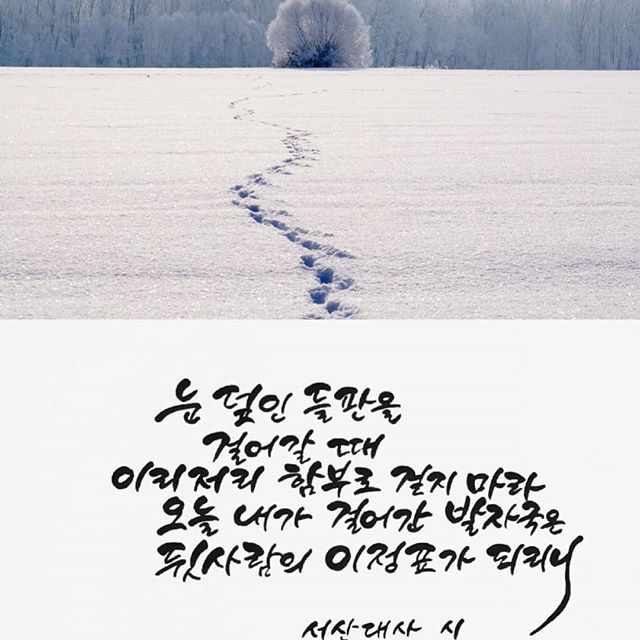 눈 덮인 들판을
걸어갈 때
이리저리 함부로 걷지 마라
오늘 내가 걸어간 발자국은
뒷사람의 이정표가 되리니
서산대사 시